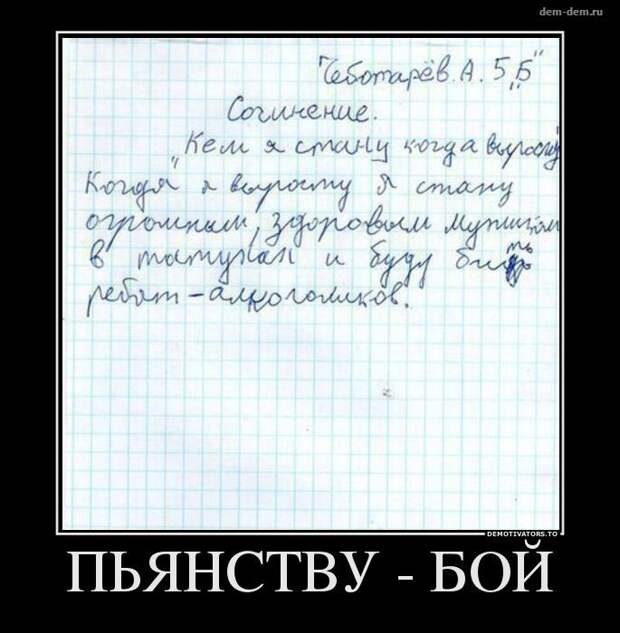 dem-dem.ru
"Чеботарёв. А. 5 "Б"
Сочинение.
"Кем я стану когда вырасту"
Когда я вырасту я стану
огромным, здоровым мужиком
в татухах и буду бить
ребят-алкоголиков.
DEMOTIVATORS.TO
ПЬЯНСТВУ - БОЙ